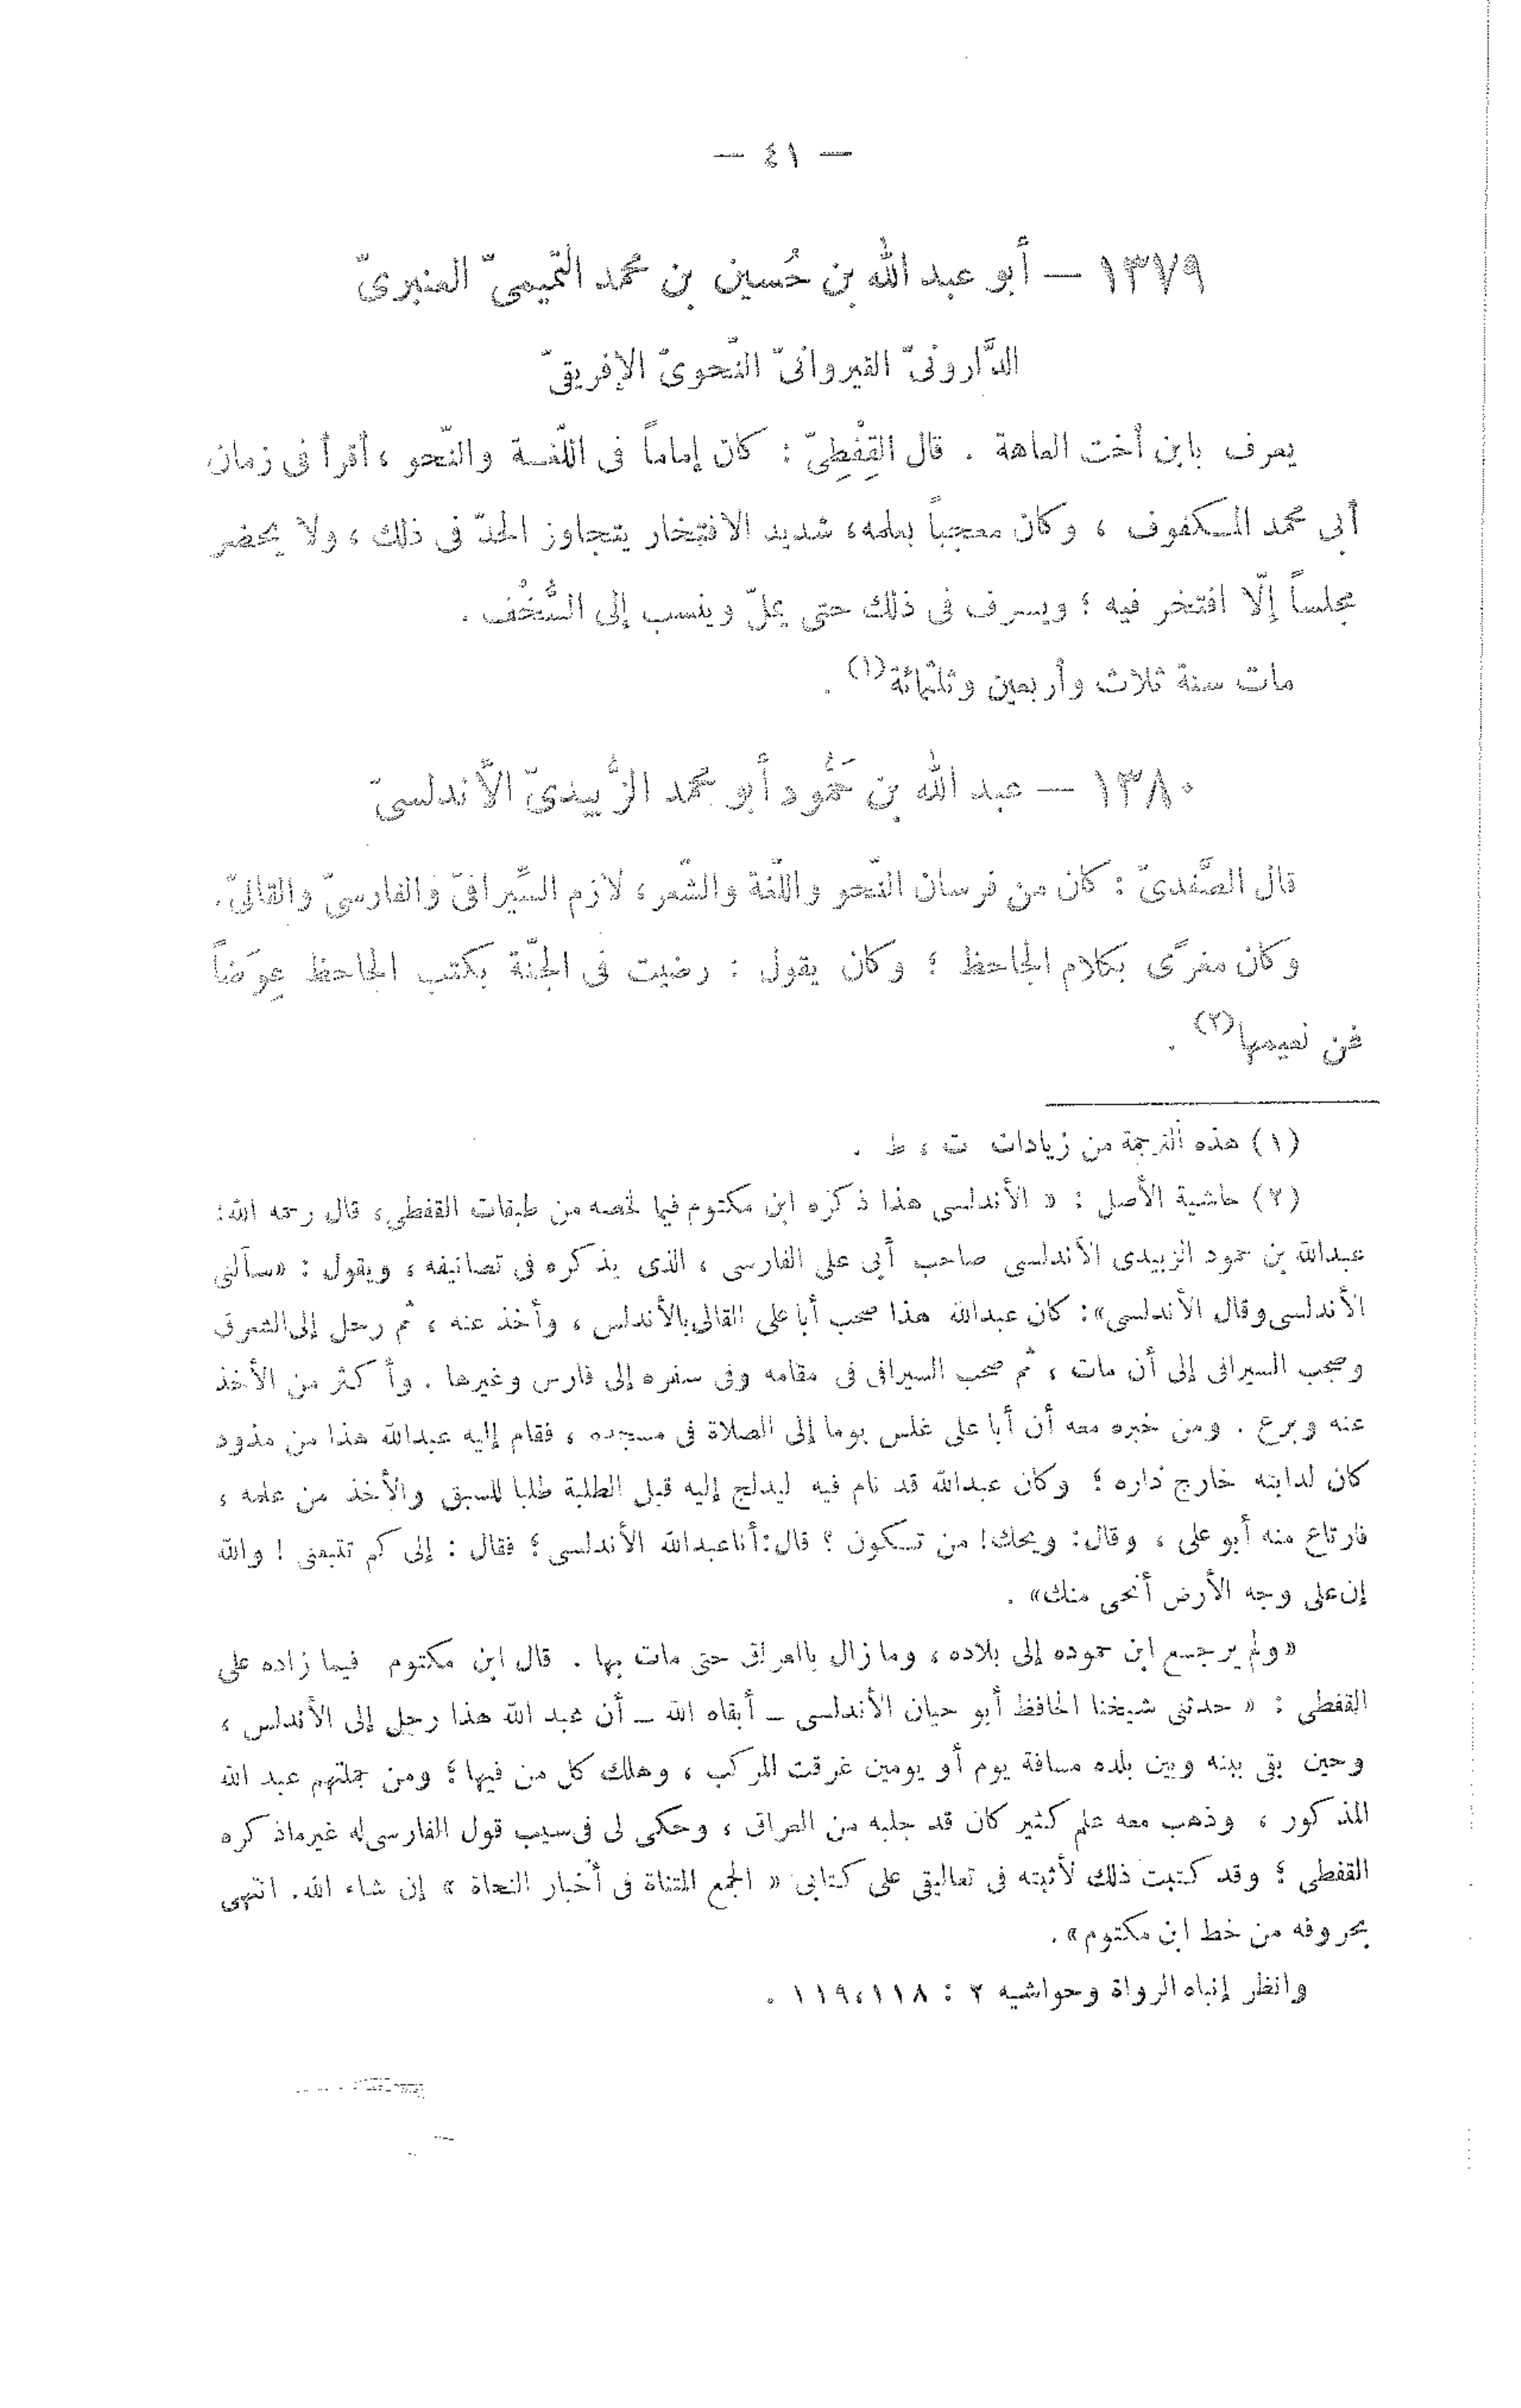 — ٤١ —
١٣٧٩ — أبو عبد الله بن حُسين بن محمد التّميمىّ العنبرىّ
الدَّارونىّ القيروانىّ النّحوىّ الإفريقىّ
يعرف بابن أخت العاهة . قال القِفْطِىّ : كان إماماً فى اللّغـة والنّحو ، أقرأ فى زمان
أبى محمد المـكفوف ، وكان معجباً بعلمه، شديد الافتخار يتجاوز الحدّ فى ذلك ، ولا يحضر
مجلساً إلّا افتخر فيه ؛ ويسرف فى ذلك حتى يملّ وينسب إلى السُّخْف .
مات سنة ثلاث وأربعين وثلثمائة(١) .
١٣٨٠ — عبد الله بن حَمُّود أبو محمد الزُّبيدىّ الأندلسىّ
قال الصَّفدىّ : كان من فرسان النّحو واللّغة والشّعر، لازم السِّيرافىّ والفارسىّ والقالىّ.
وكان مغرًى بكلام الجاحظ ؛ وكان يقول : رضيت فى الجنّة بكتب الجاحظ عِوَضاً
عن نعيمها(٢) .
(١) هذه الترجمة من زيادات ت ، ط .
(٢) حاشية الأصل : « الأندلسى هذا ذكره ابن مكتوم فيما لخصه من طبقات القفطى، قال رحمه الله:
عبدالله بن حمود الزبيدى الأندلسى صاحب أبى على الفارسى ، الذى يذكره فى تصانيفه ، ويقول : «سألنى
الأندلسى وقال الأندلسى»: كان عبدالله هذا صحب أبا على القالى بالأندلس ، وأخذ عنه ، ثم رحل إلى الشرق
وصحب السيرافى إلى أن مات ، ثم صحب السيرافى فى مقامه وفى سفره إلى فارس وغيرها . وأكثر من الأخذ
عنه وبرع . ومن خبره معه أن أبا على غلس يوما إلى الصلاة فى مسجده ، فقام إليه عبدالله هذا من مذود
كان لدابته خارج داره ؛ وكان عبدالله قد نام فيه ليدلج إليه قبل الطلبة طلبا للسبق والأخذ من علمه ،
فارتاع منه أبو على ، وقال: ويحك! من تـكون ؟ قال: أنا عبدالله الأندلسى ؛ فقال : إلى كم تتبعنى ! والله
إن على وجه الأرض أنحى منك» .
«ولم يرجـع ابن حموده إلى بلاده ، وما زال بالعراق حتى مات بها . قال ابن مكتوم فيما زاده على
القفطى : « حدثنى شيخنا الحافظ أبو حيان الأندلسى – أبقاه الله – أن عبد الله هذا رحل إلى الأندلس ،
وحين بقى بينه وبين بلده مسافة يوم أو يومين غرقت المركب ، وهلك كل من فيها ؛ ومن جملتهم عبد الله
المذكور ، وذهب معه علم كثير كان قد جلبه من العراق ، وحكى لى فى سبب قول الفارسى له غير ما ذكره
القفطى ؛ وقد كتبت ذلك لأثبته فى تعاليقى على كتابى « الجمع المتناة فى أخبار النحاة » إن شاء الله. انتهى
بحروفه من خط ابن مكتوم» .
وانظر إنباه الرواة وحواشيه ٢ : ١١٨، ١١٩ .